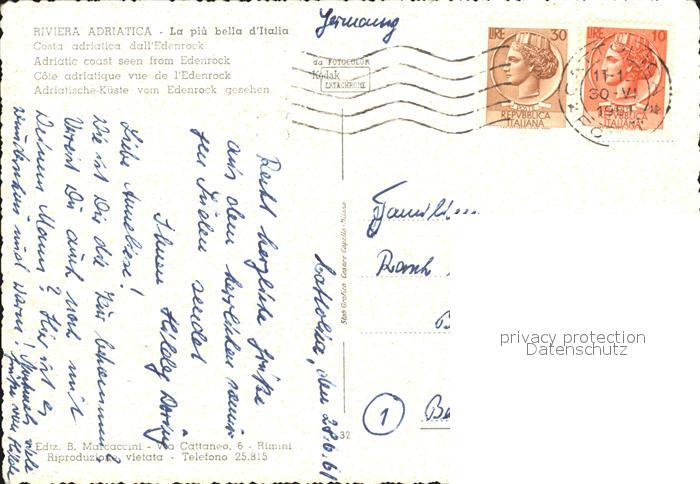 Germany
RIVIERA ADRIATICA - La più bella d'Italia
Costa adriatica dall'Edenrock
Adriatic coast seen from Edenrock
Côte adriatique vue de l'Edenrock
Adriatische-Küste vom Edenrock gesehen
da FOTOCOLOR
Kodak
EKTACHROME
LIRE 30
POSTE
REPVBBLICA
ITALIANA
LIRE 10
REPVBBLICA
ITALIANA
30-VI
Cattolica, den 28.6.61
Recht herzliche Grüße
aus dem herrlichen
Süden sendet
Ihnen Hilde
Liebe Anneliese!
Wie ist Dir die Kur bekommen?
Verreist Du auch noch mit
Deinem Mann? Hier ist es
wunderschön und warm!
Familie
B
1
Be
Stab. Grafico Cesare Capello-Milano
32
Ediz. B. Marcaccini - Via Cattaneo, 6 - Rimini
Riproduzione vietata - Telefono 25.815
privacy protection
Datenschutz